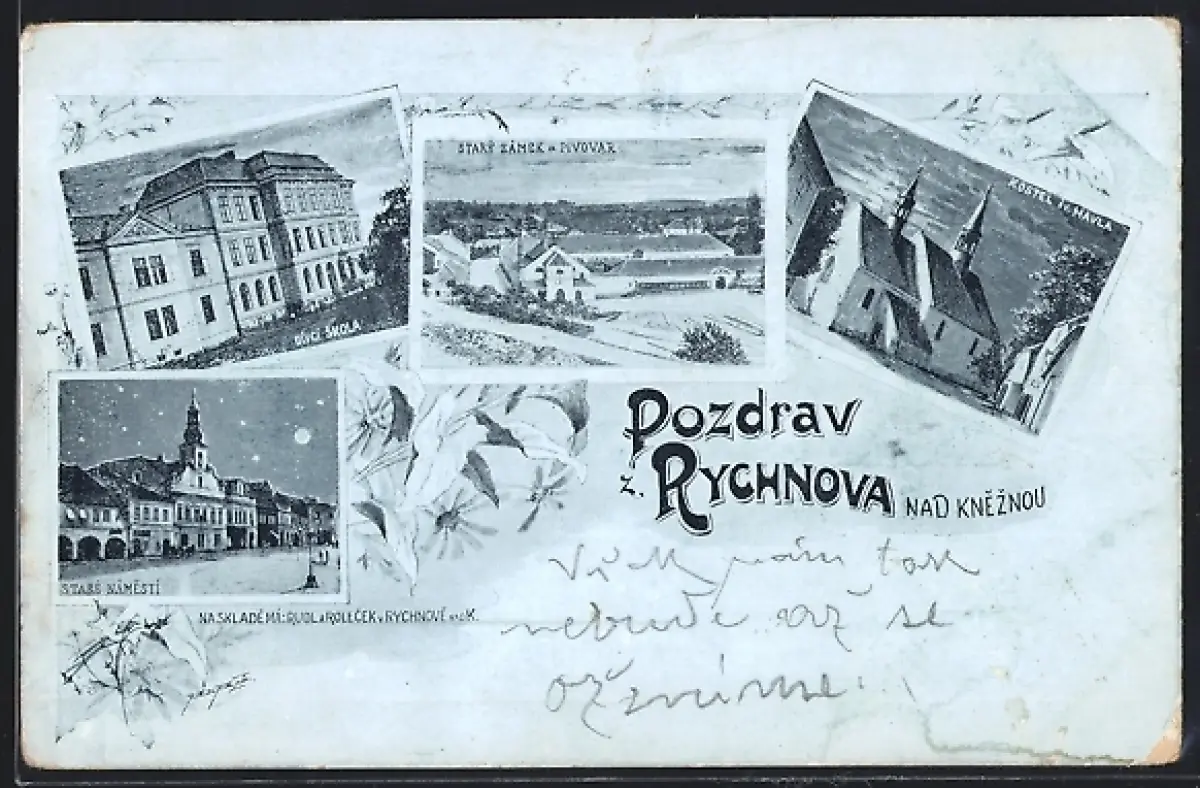 STARÝ ZÁMEK a PIVOVAR
KOSTEL SV. HAVLA
DÍVČÍ ŠKOLA
Pozdrav
z. RYCHNOVA NAD KNĚŽNOU
STARÉ NÁMĚSTÍ
NA SKLADĚ MÁ: RUDL a ROLEČEK v RYCHNOVĚ n.K.
Však vám tak
nebude až se
ožníme.